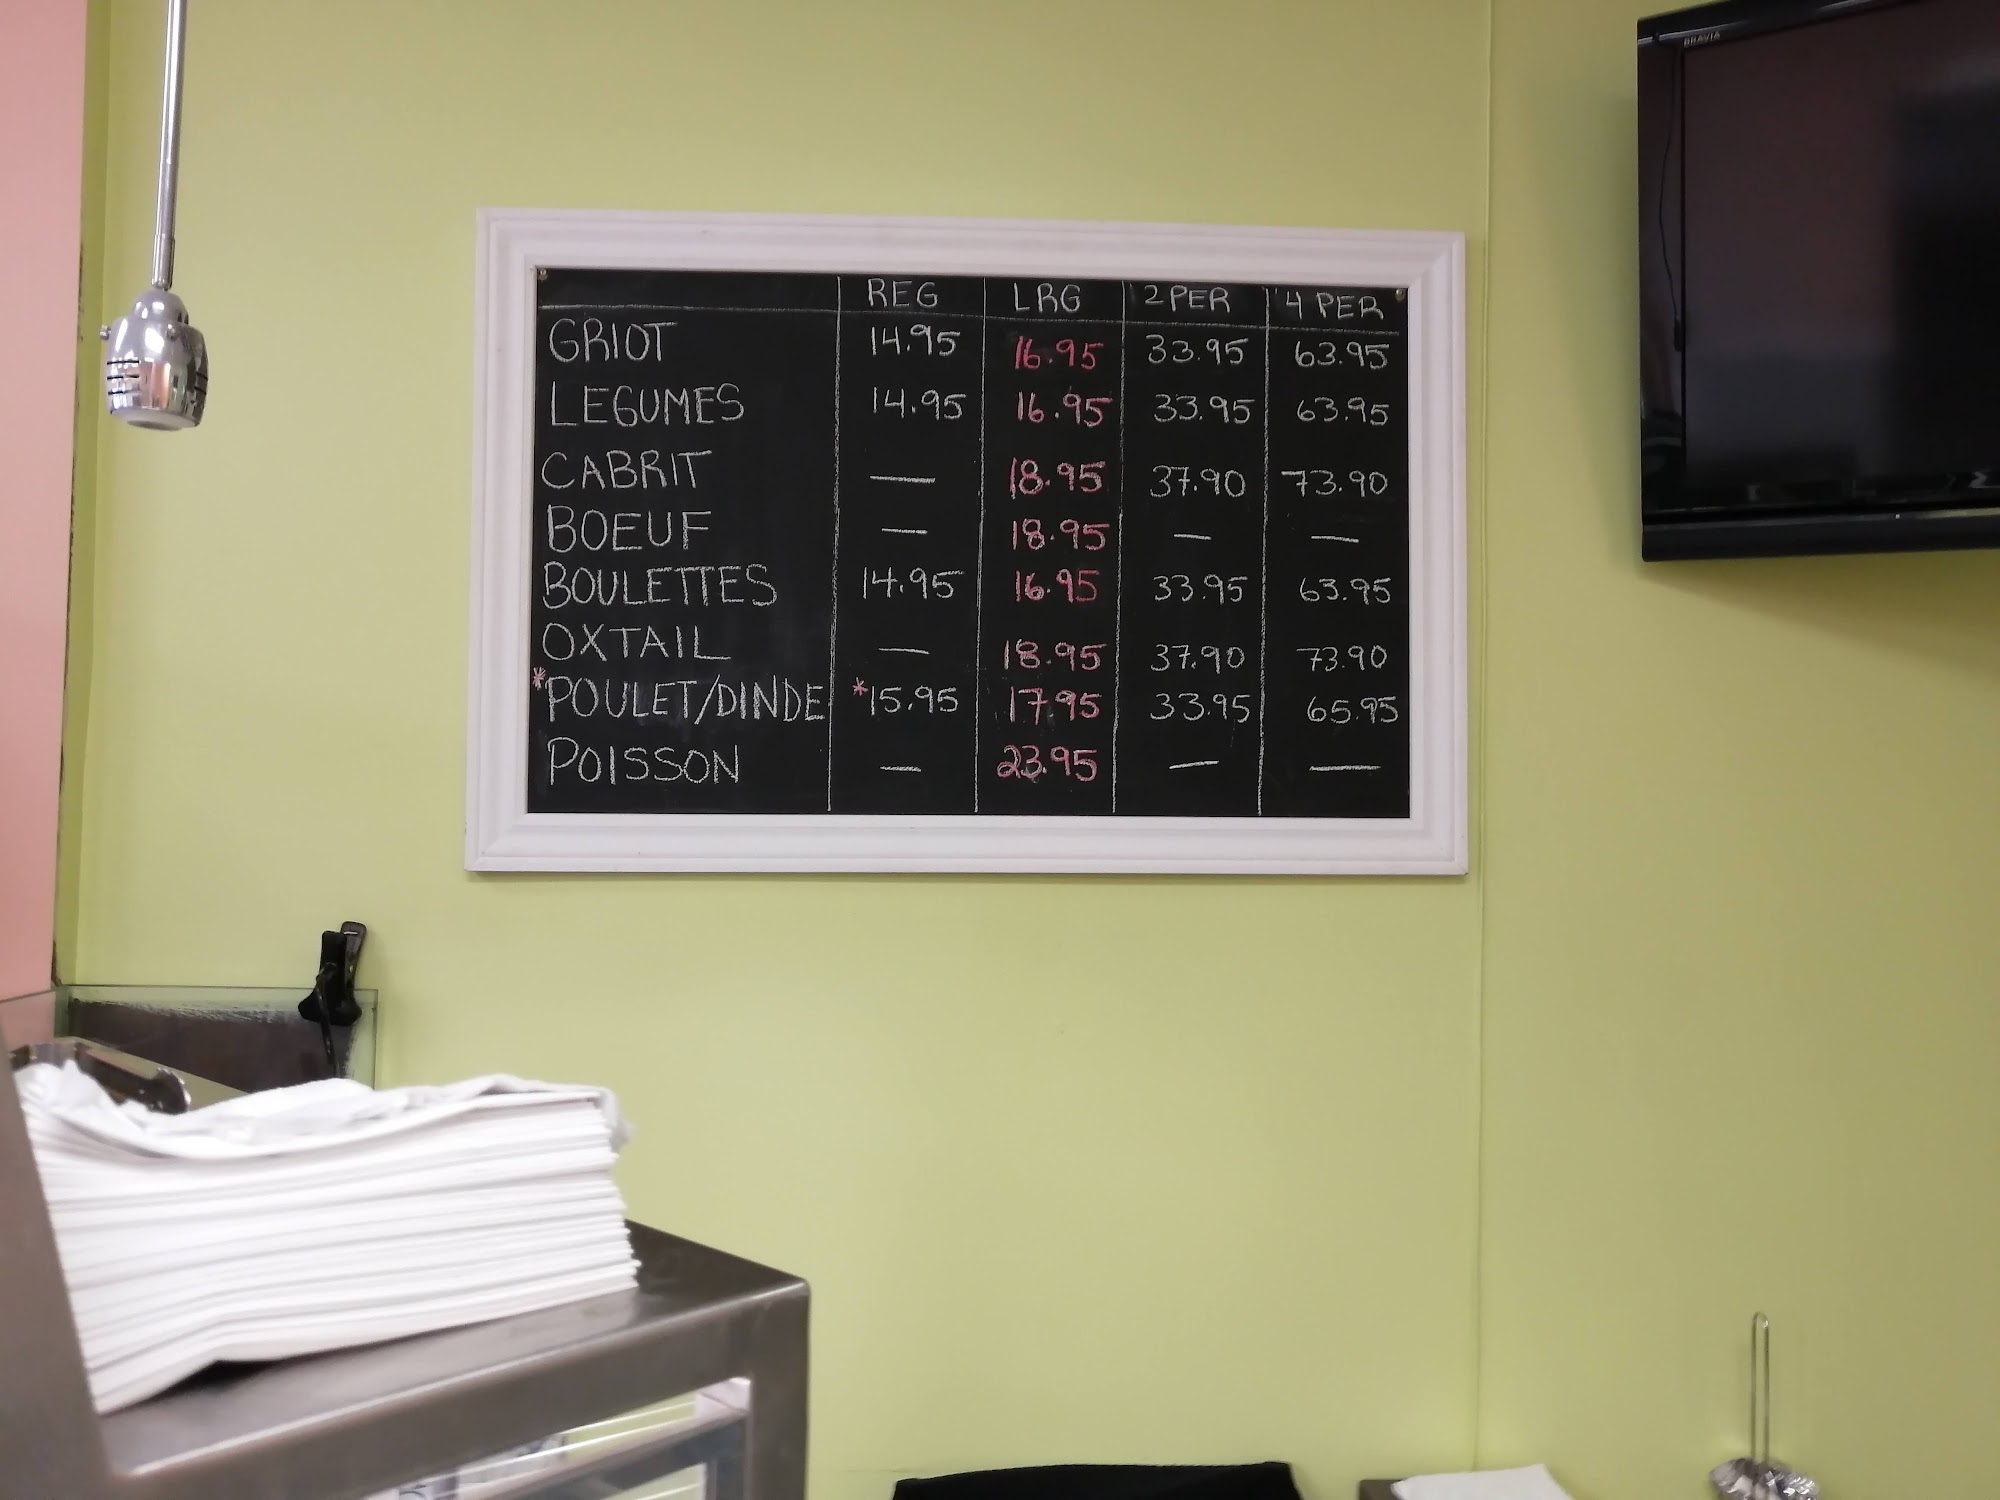 BRAVIA
REG LRG 2 PER 4 PER
GRIOT 14.95 16.95 33.95 63.95
LEGUMES 14.95 16.95 33.95 63.95
CABRIT — 18.95 37.90 73.90
BOEUF — 18.95 — —
BOULETTES 14.95 16.95 33.95 63.95
OXTAIL — 18.95 37.90 73.90
*POULET/DINDE *15.95 17.95 33.95 65.95
POISSON — 23.95 — —